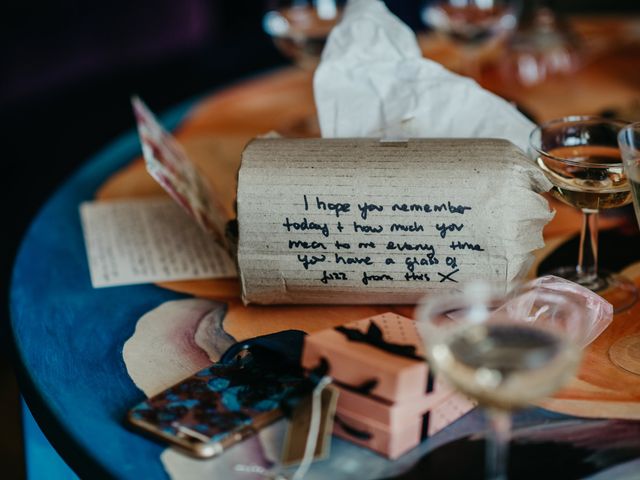 I hope you remember
today + how much you
mean to me every time
you have a glass of
fizz from this X